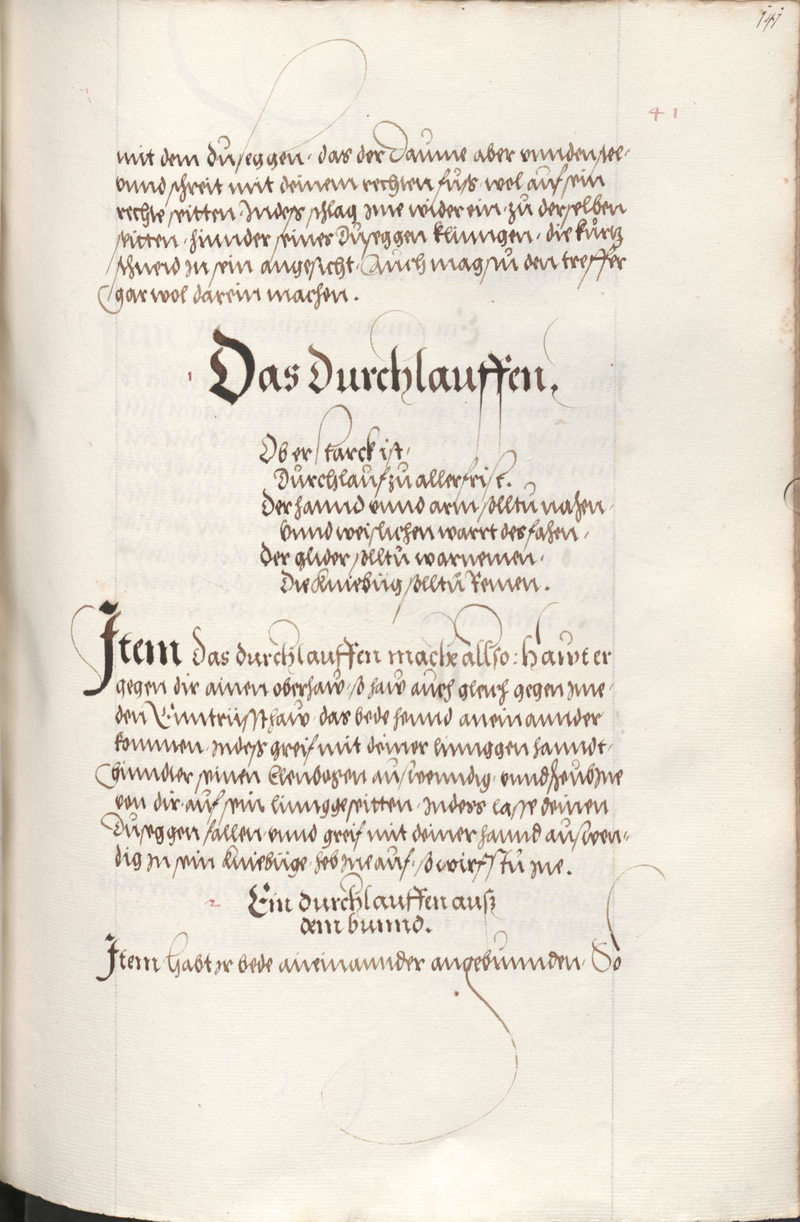 141
41
mit dem duseggen · das der Daume aber vnnden see ·
vnnd schreit mit deinem rechten fuß wol auf sein
rechte seitten Indess schlag Ime wider ein · zu derselben
seitten · hinnder seines Duseggen klinngen · die kurtz
schneid In sein angesicht · Auch magstu den treffer
gar wol darein machen .
1 Das Durchlauffen .
Ob er starck ist ·
Durchlauf zu aller frist .
Der hannd vnnd arm solltu nahen ·
Vnnd weislichen warrt des fahen ·
Der glider solltu warnemen ·
Die kniebüg solltu Remen .
Item das durchlauffen mach allso : Hawt er
gegen dir ainen oberhaw · so haw auch gleich gegen Ime ·
den Enntrüsthaw · das bede hennd aneinannder
kommen · Indess greif mit deiner linnggen hanndt ·
hinndter seinen Elenbogen auswenndig · vnnd zeuh Ine
von dir auf sein linngge seitten · Indess lasse deinen
Duseggen fallen vnnd greif mit deiner hannd auswen=
dig In sein kniebüge · heb Ine auf · so wirfstu Ine .
2 Ein durchlauffen auß
dem bunnd .
Item habt Ir bede aneinannder angebunnden · So